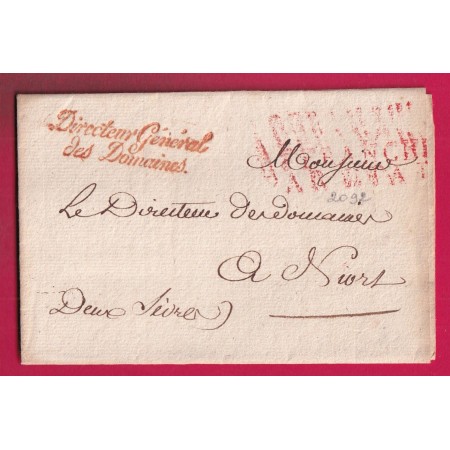 Directeur Général
des Domaines.
Monsieur
Le Directeur des domaines
2092
A Niort
Deux Sèvres